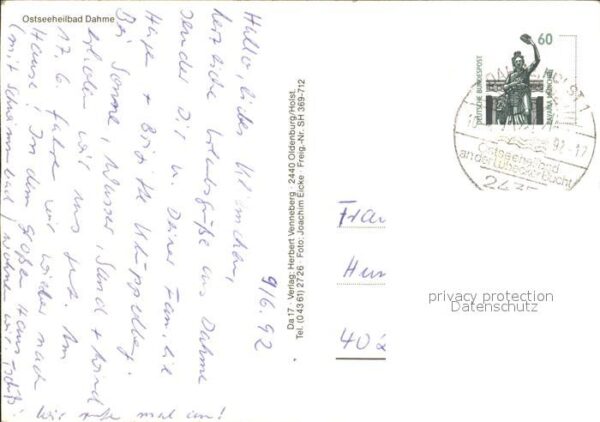 Ostseeheilbad Dahme
9/6.92
Hallo, liebes
herzliche Urlaubsgrüße aus Dahme
senden Dir u. Deiner Familie
Hajo + Brigitte
Bei Sonne, Wasser, Sand + Wind
erholen wir uns gut. Am
17.6. fahren wir wieder nach
Hause! In dem großen Haus
(mit Schwimmbad) wohnen wir. Tschüß!
Wir rufen mal an!
Da 17 · Verlag: Herbert Venneberg · 2440 Oldenburg/Holst.
Tel. (0 43 61) 27 26 · Foto: Joachim Eicke · Freig.-Nr. SH 369-712
60
DEUTSCHE BUNDESPOST
BAVARIA MÜNCHEN
92-17
Ostseeheilbad
an der Lübecker Bucht
2435
Frau
40
privacy protection
Datenschutz